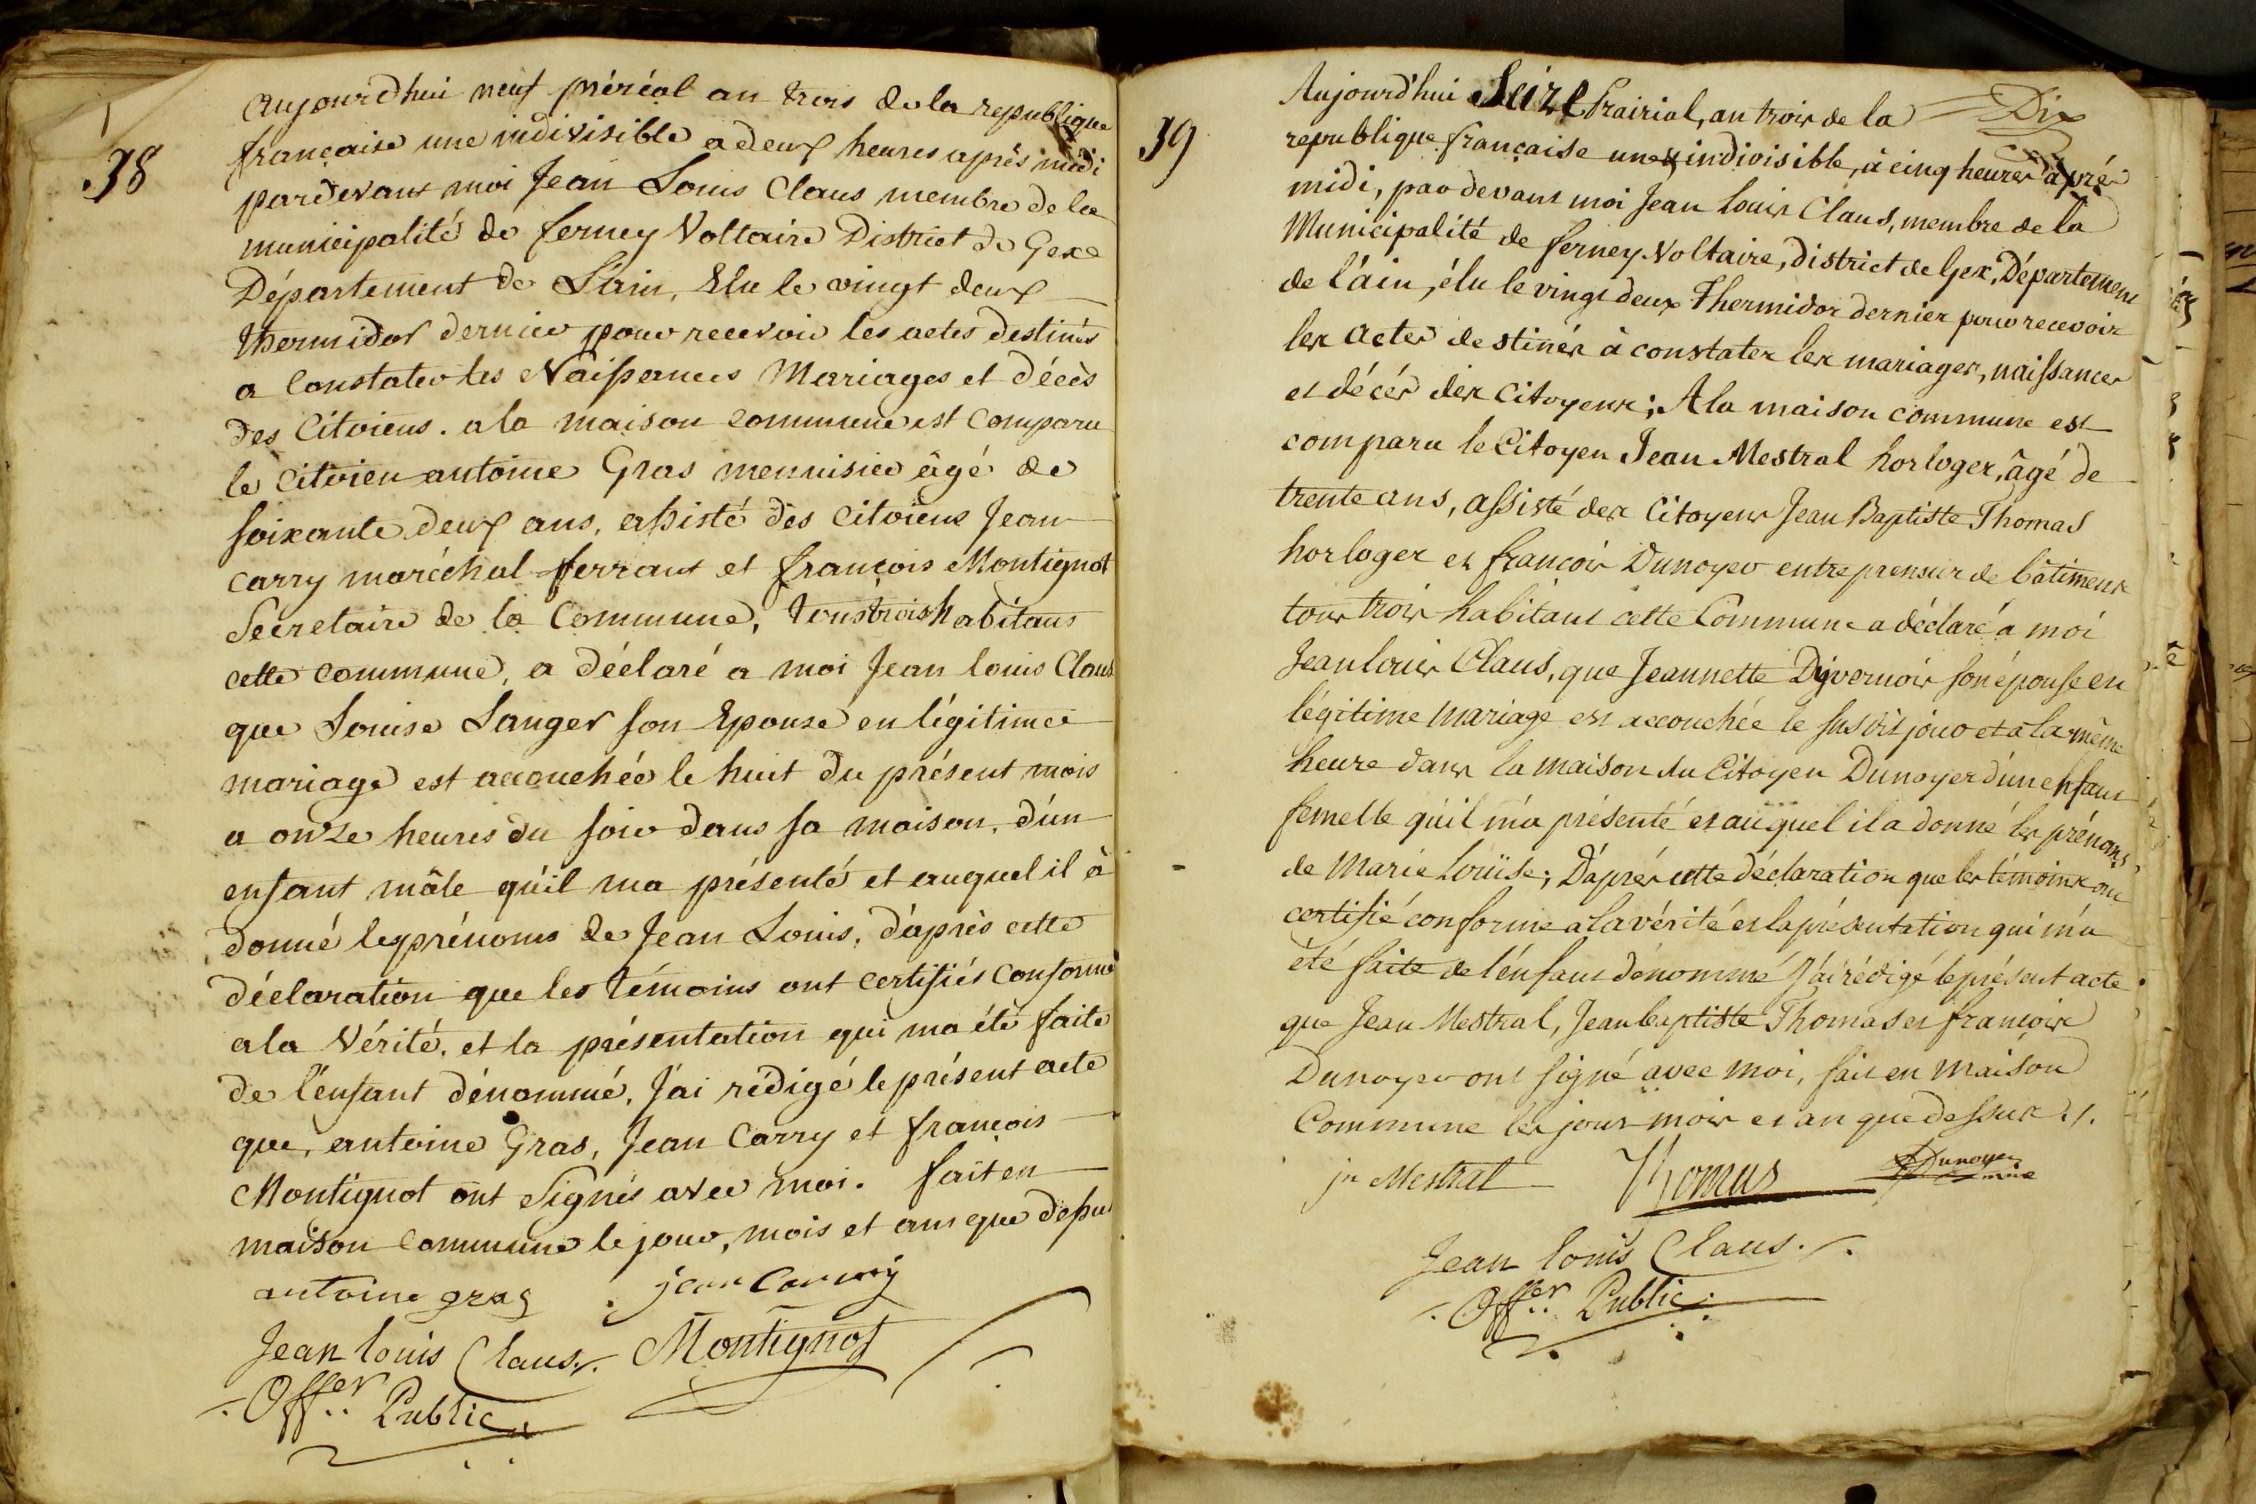 38
aujourdhui neuf préréal an trois dela republique
française une indivisible a deux heures après midi
pardevant moi Jean Louis Claus membre de la
municipalité de ferney Voltaire District de Gexe
Département de L'ain, Elu le vingt deux
thermidor dernier pour recevoir les actes destinés
a Constater les Naissances Mariages et décès
des Citoiens. a la maison commune est Comparu
le Citoien antoine Gras menuisier âgé de
soixante deux ans, assisté des Citoiens Jean
Carry maréchal ferrant et françois Montignot
Secretaire de la Commune, tous trois habitans
cette commune, a déclaré a moi Jean louis Claus
que Louise Langer son Epouse en légitime
mariage est accouchée le huit du présent mois
a onze heures du soir dans sa maison, d'un
enfant mâle qu'il ma présenté et auquel il à
donné les prénoms de Jean Louis, d'après cette
déclaration que les témoins ont certifiés Conforme
ala Vérité, et la présentation qui ma été faite
de l'enfant dénommé, J'ai rédigé le présent acte
que, antoine Gras, Jean Carry et françois
Montignot ont Signés avec moi. fait en
maison Commune le jour, mois et an que dessus
antoine gras jean Carry
Jean louis Claus. Montignot
Offer Public
39
Aujourd'hui Seize Prairial, an trois de la Dix
republique française une & indivisible, à cinq heures après
midi, par devant moi Jean Louis Claus, membre de la
Municipalité de ferney Voltaire, District de Gex, Département
de l'ain, élu le vingt deux Thermidor dernier pour recevoir
les actes destinés à constater les mariages, naissances
et décés des Citoyens; A la maison commune est
comparu le Citoyen Jean Mestral horloger, âgé de
trente ans, assisté des Citoyens Jean Baptiste Thomas
horloger et françois Dunoyer entreprenseur de bâtimens
tous trois habitans cette Commune a déclaré à moi
Jean louis Claus, que Jeannette Dyvernois son épouse en
légitime mariage est accouchée le susdit jour et à la même
heure dans la maison du Citoyen Dunoyer d'un enfant
femelle qu'il m'a présenté et auquel il a donné les prénoms
de Marie Louïse; D'après cette déclaration que les témoins ont
certifié conforme a la vérité et la présentation qui m'a
été faite de l'enfant dénommé J'ai rédigé le présent acte
que Jean Mestral, Jean baptiste Thomas et françois
Dunoyer ont signé avec moi, fait en maison
Commune les jour mois et an que dessus ./.
jn Mestral Thomas Dunoyer
Jean louis Claus ./.
Offer Public